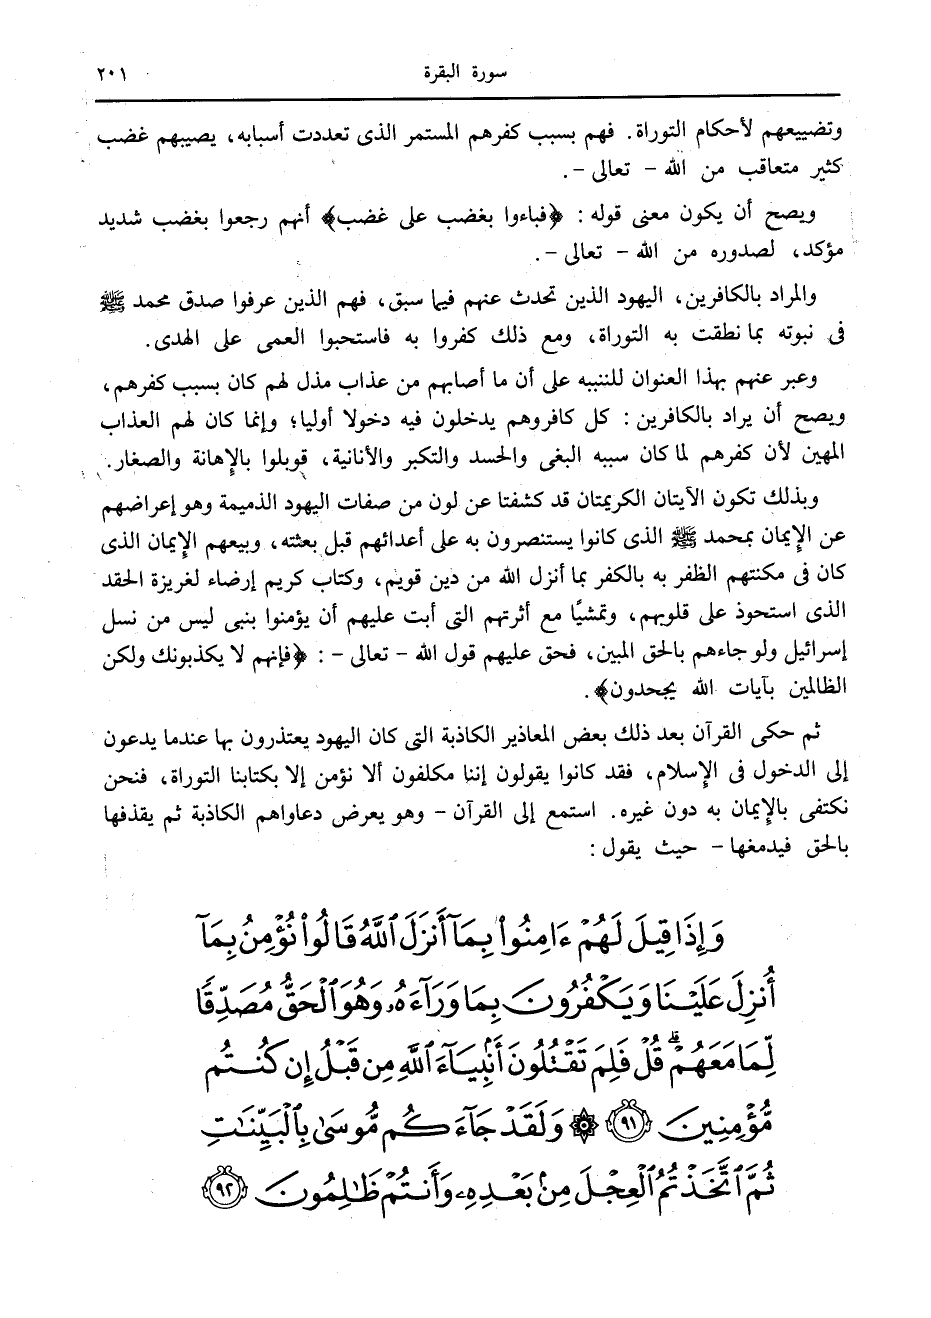 سورة البقرة ٢٠١
وتضييعهم لأحكام التوراة. فهم بسبب كفرهم المستمر الذى تعددت أسبابه، يصيبهم غضب
كثير متعاقب من الله - تعالى -.
ويصح أن يكون معنى قوله : ﴿فباءوا بغضب على غضب﴾ أنهم رجعوا بغضب شديد
مؤكد، لصدوره من الله - تعالى -.
والمراد بالكافرين، اليهود الذين تحدث عنهم فيما سبق، فهم الذين عرفوا صدق محمد ﷺ
فى نبوته بما نطقت به التوراة، ومع ذلك كفروا به فاستحبوا العمى على الهدى.
وعبر عنهم بهذا العنوان للتنبيه على أن ما أصابهم من عذاب مذل لهم كان بسبب كفرهم،
ويصح أن يراد بالكافرين : كل كافروهم يدخلون فيه دخولا أوليا؛ وإنما كان لهم العذاب
المهين لأن كفرهم لما كان سببه البغى والحسد والتكبر والأنانية، قوبلوا بالإهانة والصغار.
وبذلك تكون الآيتان الكريمتان قد كشفتا عن لون من صفات اليهود الذميمة وهو إعراضهم
عن الإيمان بمحمد ﷺ الذى كانوا يستنصرون به على أعدائهم قبل بعثته، وبيعهم الإيمان الذى
كان فى مكنتهم الظفر به بالكفر بما أنزل الله من دين قويم، وكتاب كريم إرضاء لغريزة الحقد
الذى استحوذ على قلوبهم، وتمشيًا مع أثرتهم التى أبت عليهم أن يؤمنوا بنبى ليس من نسل
إسرائيل ولو جاءهم بالحق المبين، فحق عليهم قول الله - تعالى - : ﴿فإنهم لا يكذبونك ولكن
الظالمين بآيات الله يجحدون﴾.
ثم حكى القرآن بعد ذلك بعض المعاذير الكاذبة التى كان اليهود يعتذرون بها عندما يدعون
إلى الدخول فى الإسلام، فقد كانوا يقولون إننا مكلفون ألا نؤمن إلا بكتابنا التوراة، فنحن
نكتفى بالإيمان به دون غيره. استمع إلى القرآن - وهو يعرض دعاواهم الكاذبة ثم يقذفها
بالحق فيدمغها - حيث يقول :
وَإِذَا قِيلَ لَهُمْ ءَامِنُوا۟ بِمَآ أَنزَلَ ٱللَّهُ قَالُوا۟ نُؤْمِنُ بِمَآ
أُنزِلَ عَلَيْنَا وَيَكْفُرُونَ بِمَا وَرَآءَهُۥ وَهُوَ ٱلْحَقُّ مُصَدِّقًا
لِّمَا مَعَهُمْ ۗ قُلْ فَلِمَ تَقْتُلُونَ أَنۢبِيَآءَ ٱللَّهِ مِن قَبْلُ إِن كُنتُم
مُّؤْمِنِينَ ۝٩١ ۞ وَلَقَدْ جَآءَكُم مُّوسَىٰ بِٱلْبَيِّنَـٰتِ
ثُمَّ ٱتَّخَذْتُمُ ٱلْعِجْلَ مِنۢ بَعْدِهِۦ وَأَنتُمْ ظَـٰلِمُونَ ۝٩٢